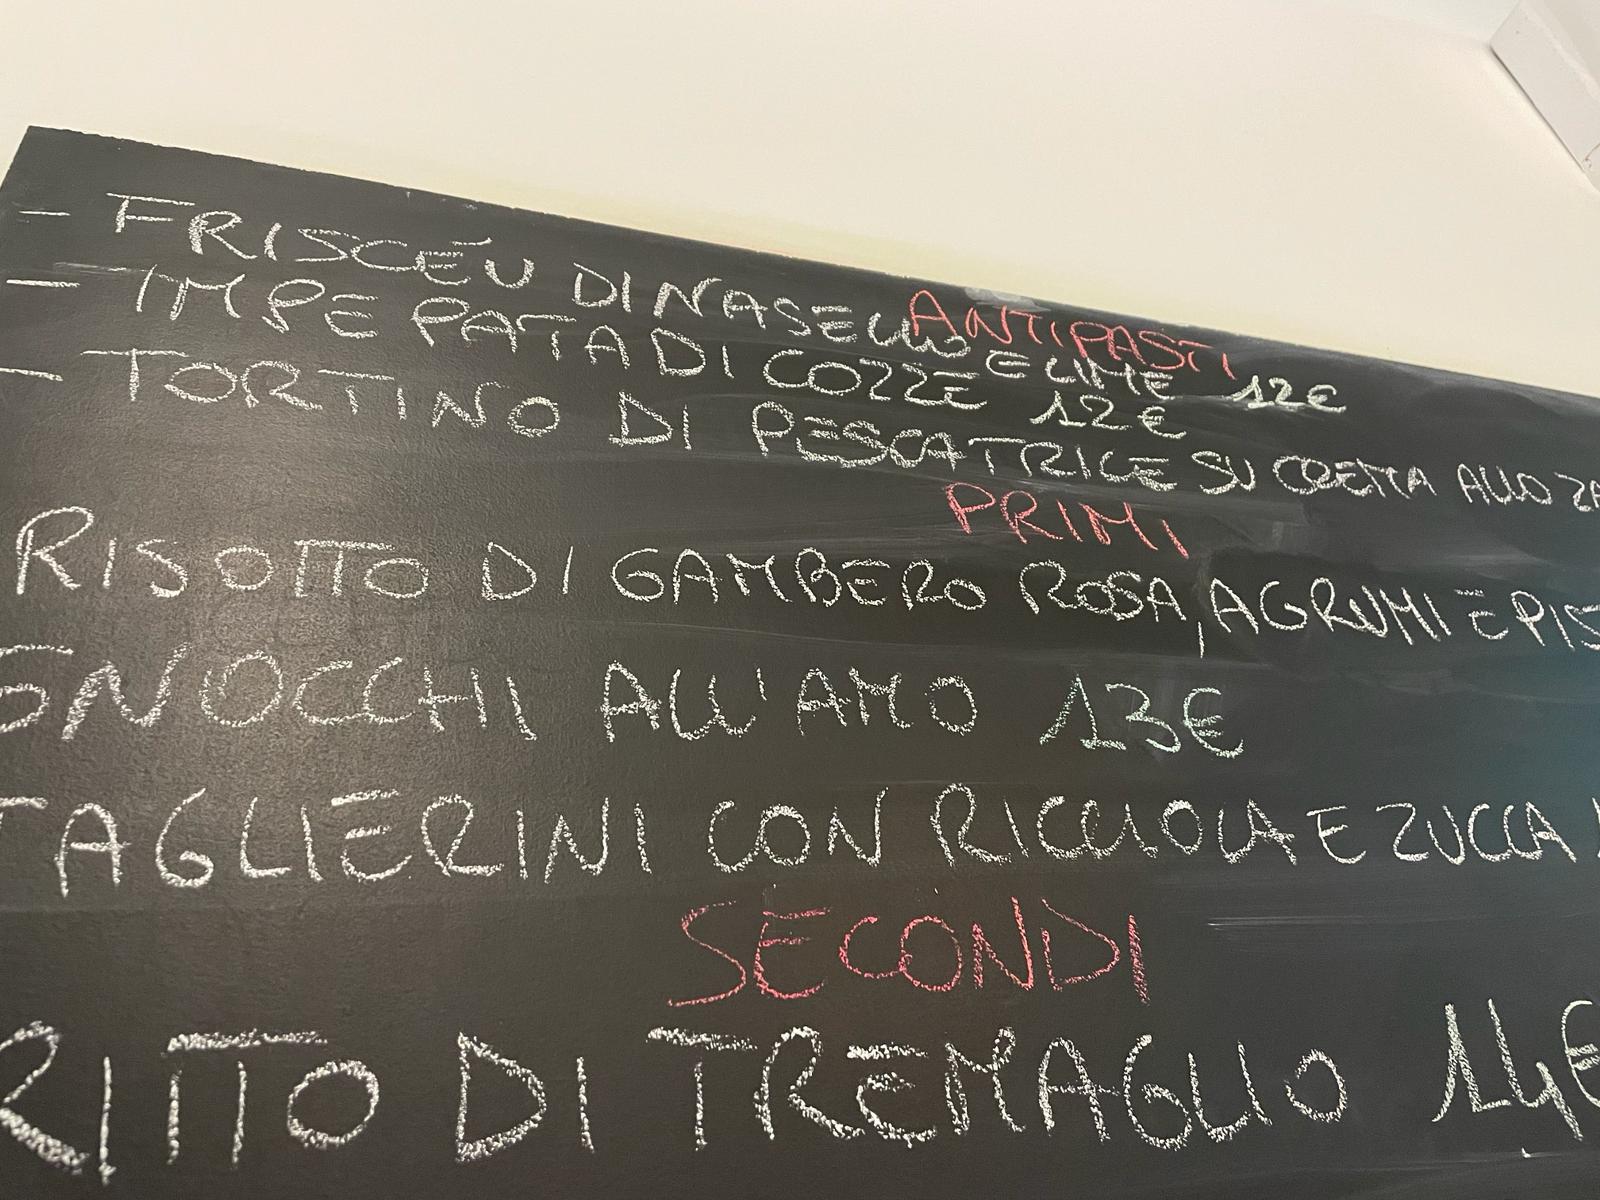 ANTIPASTI
- FRISCÉU DI NASELLO E LIME 12€
- IMPEPATA DI COZZE 12€
- TORTINO DI PESCATRICE SU CREMA ALLO ZA
PRIMI
RISOTTO DI GAMBERO ROSA, AGRUMI E PIS
GNOCCHI ALL'AMO 13€
TAGLIERINI CON RICCIOLA E ZUCCA
SECONDI
RITTO DI TREMAGLIO 14€